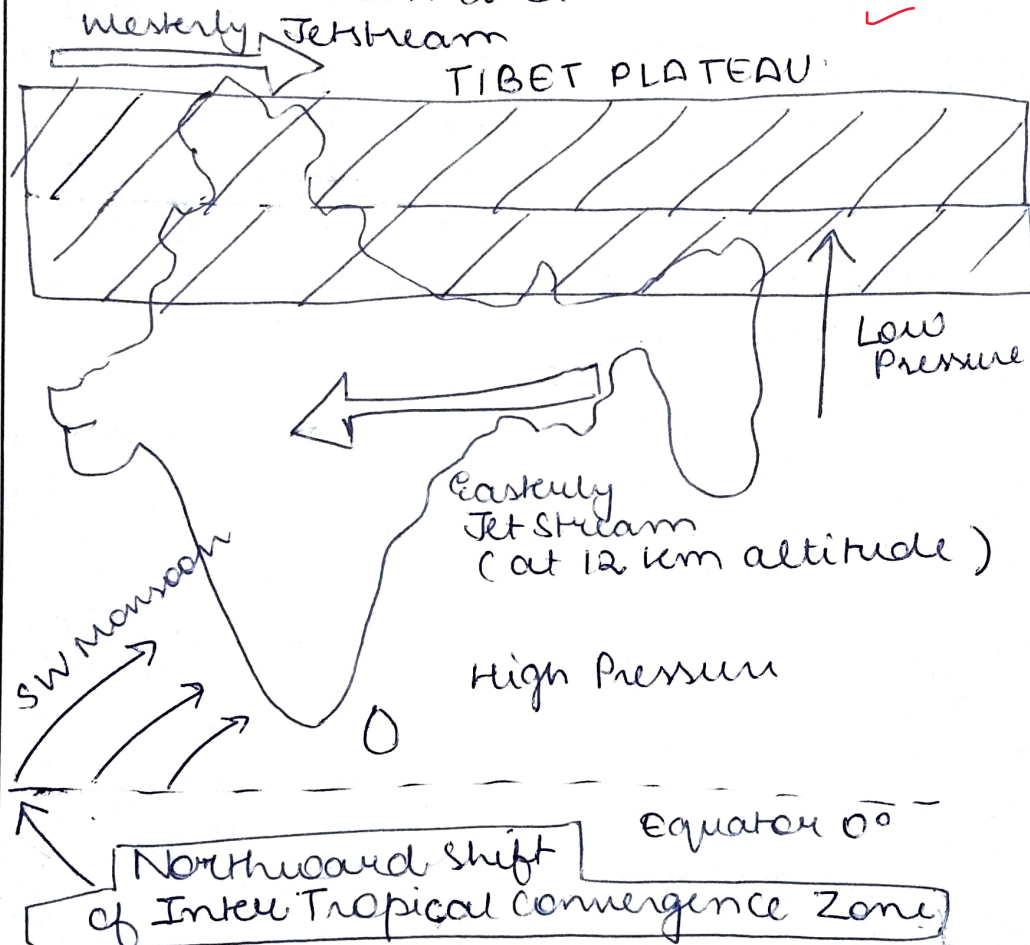 Westerly Jetstream
TIBET PLATEAU
Low
Pressure
Easterly
Jet Stream
(at 12 km altitude)
SW Monsoon
High Pressure
Equator 0°
Northward shift
of Inter Tropical Convergence Zone